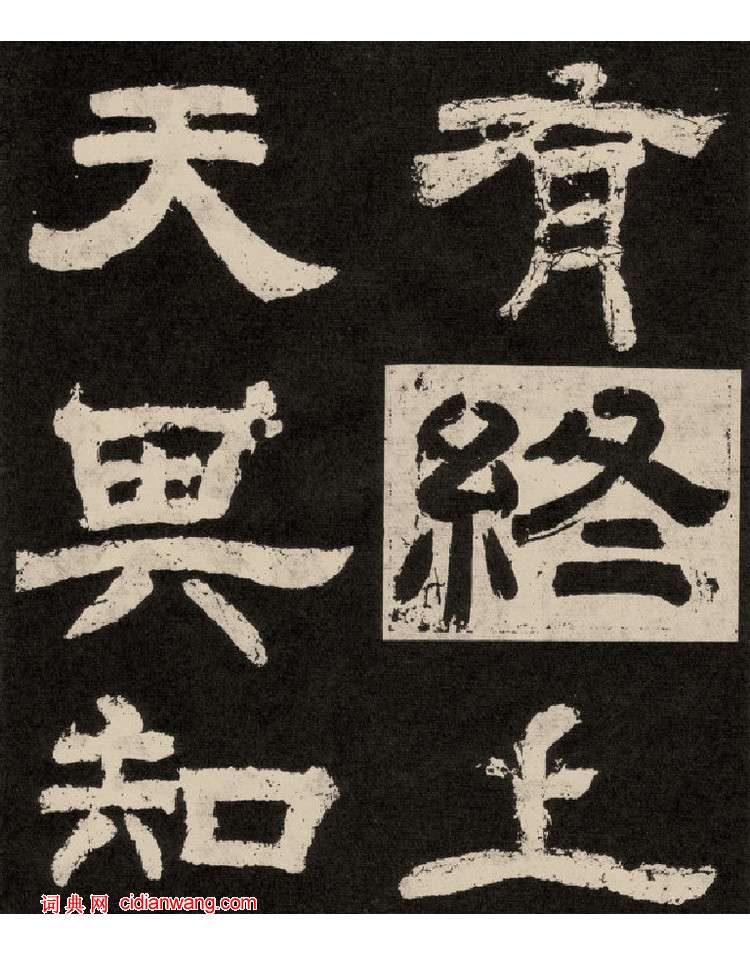 有終上
天畀知
词典网 cidianwang.com